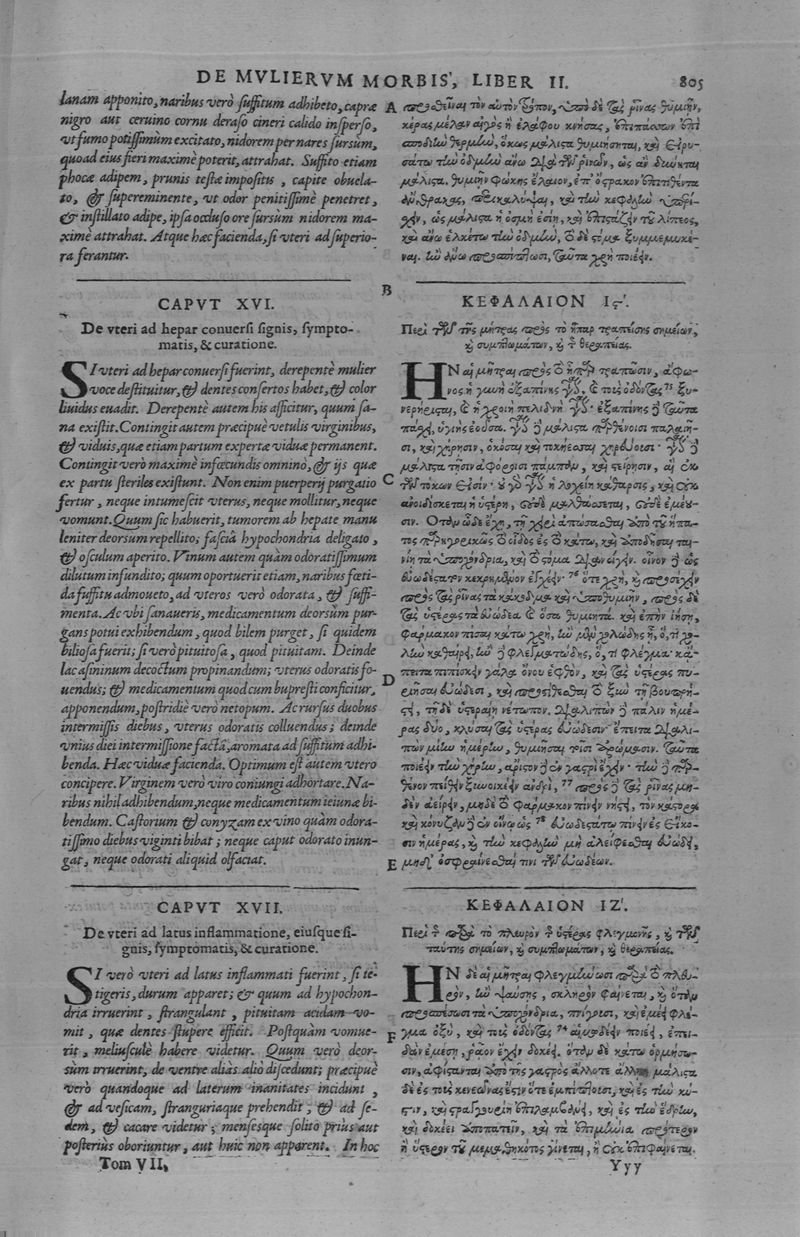 DE MVLIERVM MORBIS, LIBER II. 805
lanam apponito, naribus verò suffitum adhibeto, capræ
nigro aut ceruino cornu deraso cineri calido insperso,
vt fumo potissimùm excitato, nidorem per nares sursùm,
quoad eius fieri maximè poterit, attrahat. Suffito etiam
phocæ adipem, prunis testæ impositis, capite obuela-
to, & supereminente, vt odor penitissimè penetret,
& instillato adipe, ipsa occluso ore sursùm nidorem ma-
ximè attrahat. Atque hæc facienda, si vteri ad superio-
ra ferantur.
CAPVT XVI.
De vteri ad hepar conuersi signis, sympto-
matis, & curatione.
SI vteri ad hepar conuersi fuerint, derepentè mulier
voce destituitur, & dentes consertos habet, & color
liuidus euadit. Derepentè autem his afficitur, quum sa-
na existit. Contingit autem præcipuè vetulis virginibus,
& viduis, quæ etiam partum expertæ viduæ permanent.
Contingit verò maximè infœcundis omninò, & ijs quæ
ex partu steriles existunt. Non enim puerperij purgatio
fertur, neque intumescit vterus, neque mollitur, neque
vomunt. Quum sic habuerit, tumorem ab hepate manu
leniter deorsum repellito; fasciâ hypochondria deligato,
& osculum aperito. Vinum autem quàm odoratissimum
dilutum infundito; quum oportuerit etiam, naribus fœti-
da suffitu admoueto, ad vteros verò odorata, & suffi-
menta. Ac vbi sanaueris, medicamentum deorsùm pur-
gans potui exhibendum, quod bilem purget, si quidem
biliosa fuerit; si verò pituitosa, quod pituitam. Deinde
lac asininum decoctum propinandum; vterus odoratis fo-
uendus; & medicamentum quod cum bupresti conficitur,
apponendum, postridiè verò netopum. Ac rursus duobus
intermissis diebus, vterus odoratis colluendus; deinde
vnius diei intermissione facta, aromata ad suffitum adhi-
benda. Hæc viduæ facienda. Optimum est autem vtero
concipere. Virginem verò viro coniungi adhortare. Na-
ribus nihil adhibendum, neque medicamentum ieiunæ bi-
bendum. Castorium & conyzam ex vino quàm odora-
tissimo diebus viginti bibat; neque caput odorato inun-
gat, neque odorati aliquid olfaciat.
CAPVT XVII.
De vteri ad latus inflammatione, eiusque si-
gnis, symptomatis, & curatione.
SI verò vteri ad latus inflammati fuerint, si te-
tigeris, durum apparet; & quum ad hypochon-
dria irruerint, strangulant, pituitam acidam vo-
mit, quæ dentes stupere efficit. Postquàm vomue-
rit, meliusculè habere videtur. Quum verò deor-
sùm irruerint, de ventre aliàs aliò discedunt; præcipuè
verò quandoque ad laterum inanitates incidunt,
& ad vesicam, stranguriaque prehendit; & ad se-
dem, & cacare videtur; mensesque solito prius aut
posterius oboriuntur, aut huic non apparent. In hoc
Tom VII,
A
B
C
D
E
F
προσθεῖναι τὸν αὐτὸν τρόπον, ὑπὸ δὲ τὰς ῥῖνας θυμιῆν,
κέρας μέλαν αἰγὸς ἢ ἐλάφου κνήσας, ἐπιπάσσων ἐπὶ
σποδιὴν θερμὴν, ὅκως μάλιστα θυμιήσηται, καὶ εἰρυ-
σάτω τὴν ὀδμὴν ἄνω διὰ τῶν ῥινῶν, ὡς ἂν δύνηται
μάλιστα. θυμιῆν φώκης ἔλαιον, ἐπ' ὄστρακον ἐπιτιθέντα
ἄνθρακας, περικαλύψαι, καὶ τὴν κεφαλὴν ὑπερέ-
χειν, ὡς μάλιστα ἡ ὀσμὴ ἐσίῃ, καὶ ἐπιστάζειν τοῦ λίπεος,
καὶ ἄνω ἑλκέτω τὴν ὀδμὴν, τὸ δὲ στόμα ξυμμεμυκέ-
ναι. ἢν ἄνω προσπέσωσι, ταῦτα χρὴ ποιέειν.
ΚΕΦΑΛΑΙΟΝ Ιϛ'.
Περὶ τῶν τῆς μήτρας πρὸς τὸ ἧπαρ τραπείσης σημείων,
καὶ συμπτωμάτων, καὶ τῆς θεραπείας.
ΗΝ αἱ μῆτραι πρὸς τὸ ἧπαρ τραπῶσιν, ἄφω-
νος ἡ γυνὴ ἐξαπίνης γίνεται, καὶ τοὺς ὀδόντας 75 ξυ-
νερήρεισται, καὶ ἡ χροιὴ πελιδνὴ γίνεται· ἐξαπίνης δὲ ταῦτα
πάσχει, ὑγιὴς ἐοῦσα. γίνεται δὲ μάλιστα παρθένοισι παλαιῇ-
σι, καὶ χήρῃσιν, ὁκόσαι καὶ τοκήεσσαι χηρεύουσι· γίνεται δὲ
μάλιστα τῇσιν ἀφόροισι πάμπαν, καὶ στείρῃσιν, αἳ ἐκ
τῶν τόκων εἰσίν· οὐ γὰρ γίνεται ἡ λοχείη κάθαρσις, καὶ οὐκ
ἀνοιδίσκεται ἡ ὑστέρη, οὐδὲ μαλθάσσεται, οὐδὲ ἐμέου-
σιν. Ὅταν ὧδε ἔχῃ, τῇ χειρὶ ἀπώσασθαι ἀπὸ τοῦ ἥπα-
τος παρηγορικῶς τὸ οἶδος ἐς τὸ κάτω, καὶ ἀποδῆσαι ται-
νίῃ τὰ ὑποχόνδρια, καὶ τὸ στόμα διανοίγειν. οἶνον δὲ ὡς
εὐωδέστατον κεκρημένον ἐγχέειν· 76 ὅτε χρὴ, καὶ προσίσχειν
πρὸς τὰς ῥῖνας τὰ κάκοδμα καὶ ὑποθυμιῆν, πρὸς δὲ
τὰς ὑστέρας τὰ εὐώδεα καὶ ὅσα θυμιητά. καὶ ἐπὴν ἰήσῃ,
φάρμακον πῖσαι κάτω χρὴ, ἢν μὲν χολώδης ᾖ, ὅ, τι χο-
λὴν καθαίρει, ἢν δὲ φλεγματώδης, ὅ, τι φλέγμα· κἄ-
πειτα πιπίσκειν γάλα ὄνου ἑφθὸν, καὶ τὰς ὑστέρας πυ-
ριῆσαι εὐώδεσι, καὶ προστίθεσθαι τὸ ξὺν τῇ βουπρή-
στι, τῇ δὲ ὑστεραίῃ νέτωπον. διαλιπὼν δὲ πάλιν ἡμέ-
ρας δύο, κλύσαι τὰς ὑστέρας εὐώδεσιν· ἔπειτα διαλι-
πὼν μίην ἡμέρην, θυμιῆσαι τοῖσι ἀρώμασιν. ταῦτα
ποιέειν τὴν χήρην, ἄριστον δὲ ἐν γαστρὶ ἔχειν· τὴν δὲ παρ-
θένον πείθειν ξυνοικέειν ἀνδρὶ, 77 πρὸς δὲ τὰς ῥῖνας μη-
δὲν αείρειν, μηδὲ τὸ φάρμακον πίνειν νῆστι, τὸν κάστορα
καὶ κόνυζαν δὲ ἐν οἴνῳ ὡς 78 εὐωδεστάτῳ πίνειν ἐς εἴκο-
σιν ἡμέρας, καὶ τὴν κεφαλὴν μὴ ἀλείφεσθαι εὐώδει,
μηδὲ ὀσφραίνεσθαί τινι τῶν εὐωδέων.
ΚΕΦΑΛΑΙΟΝ ΙΖ'.
Περὶ τῆς παρὰ τὸ πλευρὸν τῆς ὑστέρας φλεγμονῆς, καὶ τῶν
ταύτης σημείων, καὶ συμπτωμάτων, καὶ θεραπείας.
ΗΝ δὲ αἱ μῆτραι φλεγμήνωσι παρὰ τὸ πλευ-
ρὸν, ἢν ψαύσῃς, σκληρὸν φαίνεται, καὶ ὅταν
προσπέσωσι τὰ ὑποχόνδρια, πνίγουσι, καὶ ἐμέει φλέ-
γμα ὀξὺ, καὶ τοὺς ὀδόντας 79 αἱμωδέειν ποιέει, ἐπει-
δὰν ἐμέσῃ, ῥᾷον ἔχειν δοκέει. ὅταν δὲ κάτω ὁρμήσω-
σιν, ἀφίστανται ἀπὸ τῆς γαστρὸς ἄλλοτε ἄλλῃ, μάλιστα
δὲ ἐς τοὺς κενεῶνας ἔστιν ὅτε ἐμπίπτουσι, καὶ ἐς τὴν κύ-
στιν, καὶ στραγγουρίη ἐπιλαμβάνει, καὶ ἐς τὴν ἕδρην,
καὶ δοκέει ἀποπατεῖν, καὶ τὰ ἐπιμήνια πρότερον
ἢ ὕστερον τοῦ μεμαθηκότος γίνεται, ἢ οὐκ ἐπιφαίνεται.
Yyy